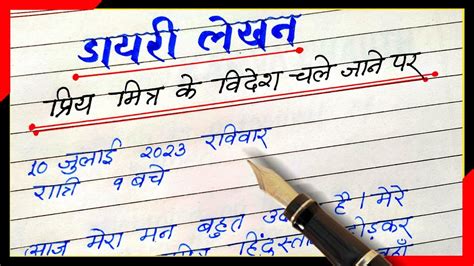 डायरी लेखन
प्रिय मित्र के विदेश चले जाने पर
10 जुलाई 2023 रविवार
रात्रि ९ बचे
आज मेरा मन बहुत है। मेरे
छोड़कर